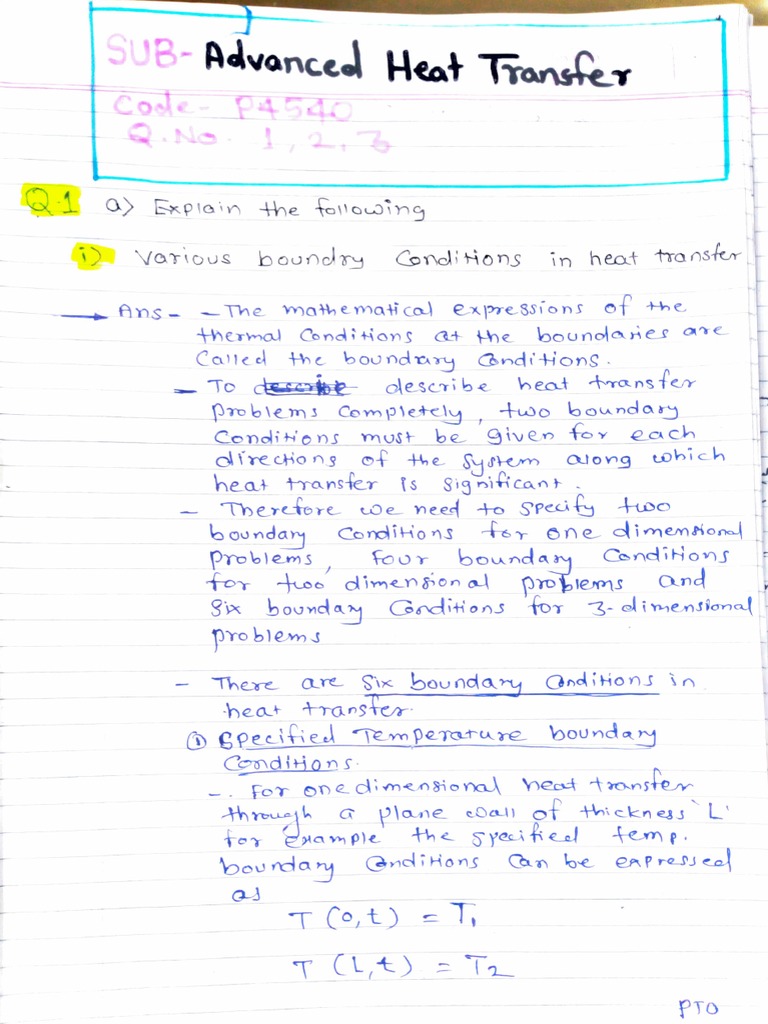 SUB- Advanced Heat Transfer
Code- P4540
Q.No. 1, 2, 3
Q.1 a) Explain the following
i) Various boundry Conditions in heat transfer
→ Ans - - The mathematical expressions of the
thermal Conditions at the boundaries are
Called the boundrary Conditions.
- To describe describe heat transfer
problems completely, two boundary
Conditions must be given for each
directions of the system along which
heat transfer is significant.
- Therefore we need to specify two
boundary Conditions for one dimensional
problems, four boundary Conditions
for two dimensional problems and
Six boundary Conditions for 3-dimensional
problems
- There are Six boundary Conditions in
heat transfer.
① Specified Temperature boundary
Conditions.
-. For one dimensional heat transfer
through a plane wall of thickness 'L'
for example the specified temp.
boundary Conditions Can be expressed
as
T (0,t) = T1
T (L,t) = T2
PTO